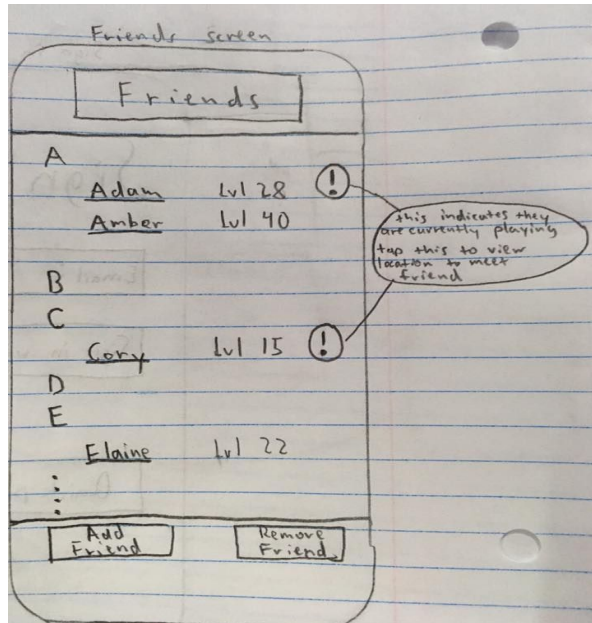 Friends screen
Friends
A
Adam Lvl 28 !
Amber Lvl 40
this indicates they
are currently playing
tap this to view
location to meet
friend
B
C
Cory Lvl 15 !
D
E
Elaine Lvl 22
Add
Friend
Remove
Friend